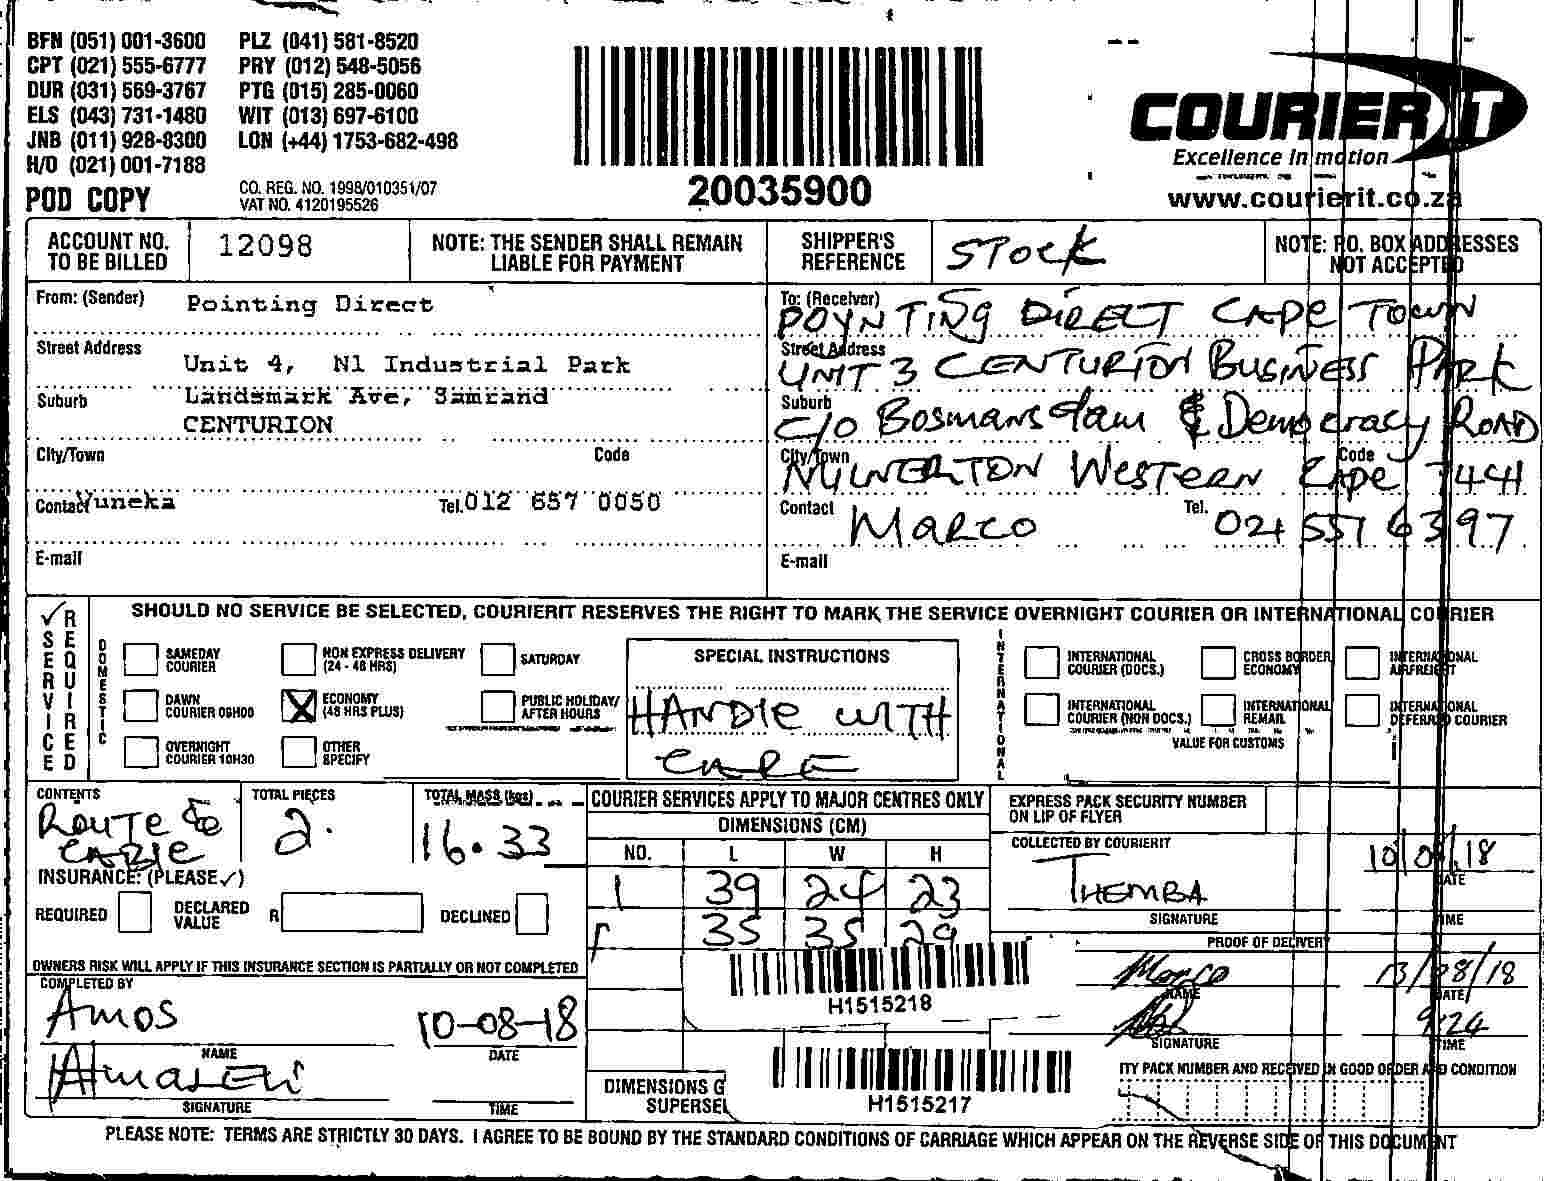 BFN (051) 001-3600 PLZ (041) 581-8520
CPT (021) 555-6777 PRY (012) 548-5056
DUR (031) 569-3767 PTG (015) 285-0060
ELS (043) 731-1480 WIT (013) 697-6100
JNB (011) 928-8300 LON (+44) 1753-682-498
H/O (021) 001-7188
POD COPY
CO. REG. NO. 1998/010351/07
VAT NO. 4120195526
20035900
COURIER IT
Excellence in motion
www.courierit.co.za
ACCOUNT NO. TO BE BILLED
12098
NOTE: THE SENDER SHALL REMAIN LIABLE FOR PAYMENT
SHIPPER'S REFERENCE
STOCK
NOTE: P.O. BOX ADDRESSES NOT ACCEPTED
From: (Sender) Pointing Direct
Street Address Unit 4, N1 Industrial Park
Suburb Landsmark Ave, Samrand
CENTURION
City/Town Code
Contact Yuneka Tel. 012 657 0050
E-mail
To: (Receiver) POYNTING DIRECT CAPE TOWN
Street Address UNIT 3 CENTURION BUSINESS PARK
Suburb C/O Bosmansdam & Democracy ROAD
City/Town MILNERTON WESTERN CAPE Code 7441
Contact MARCO Tel. 021 551 6397
E-mail
SERVICE REQUIRED
SHOULD NO SERVICE BE SELECTED, COURIERIT RESERVES THE RIGHT TO MARK THE SERVICE OVERNIGHT COURIER OR INTERNATIONAL COURIER
DOMESTIC
SAMEDAY COURIER
NON EXPRESS DELIVERY (24 - 48 HRS)
SATURDAY
DAWN COURIER 09H00
X ECONOMY (48 HRS PLUS)
PUBLIC HOLIDAY/ AFTER HOURS
OVERNIGHT COURIER 10H30
OTHER SPECIFY
SPECIAL INSTRUCTIONS
HANDLE WITH
CARE
INTERNATIONAL
INTERNATIONAL COURIER (DOCS.)
CROSS BORDER ECONOMY
INTERNATIONAL AIRFREIGHT
INTERNATIONAL COURIER (NON DOCS.)
INTERNATIONAL REMAIL
INTERNATIONAL DEFERRED COURIER
VALUE FOR CUSTOMS
CONTENTS
ROUTE &
CABLE
TOTAL PIECES
2.
TOTAL MASS (kgs)
16.33
INSURANCE: (PLEASE ✓)
REQUIRED DECLARED VALUE R DECLINED
OWNERS RISK WILL APPLY IF THIS INSURANCE SECTION IS PARTIALLY OR NOT COMPLETED
COMPLETED BY
AMOS 10-08-18
NAME DATE
SIGNATURE TIME
COURIER SERVICES APPLY TO MAJOR CENTRES ONLY
DIMENSIONS (CM)
NO. L W H
1 39 24 23
35 35 29
H1515218
H1515217
DIMENSIONS G
SUPERSE
EXPRESS PACK SECURITY NUMBER ON LIP OF FLYER
COLLECTED BY COURIERIT
THEMBA 10/08/18
DATE
SIGNATURE TIME
PROOF OF DELIVERY
Marco 13/08/18
NAME DATE
9:24
SIGNATURE TIME
ITY PACK NUMBER AND RECEIVED IN GOOD ORDER AND CONDITION
PLEASE NOTE: TERMS ARE STRICTLY 30 DAYS. I AGREE TO BE BOUND BY THE STANDARD CONDITIONS OF CARRIAGE WHICH APPEAR ON THE REVERSE SIDE OF THIS DOCUMENT